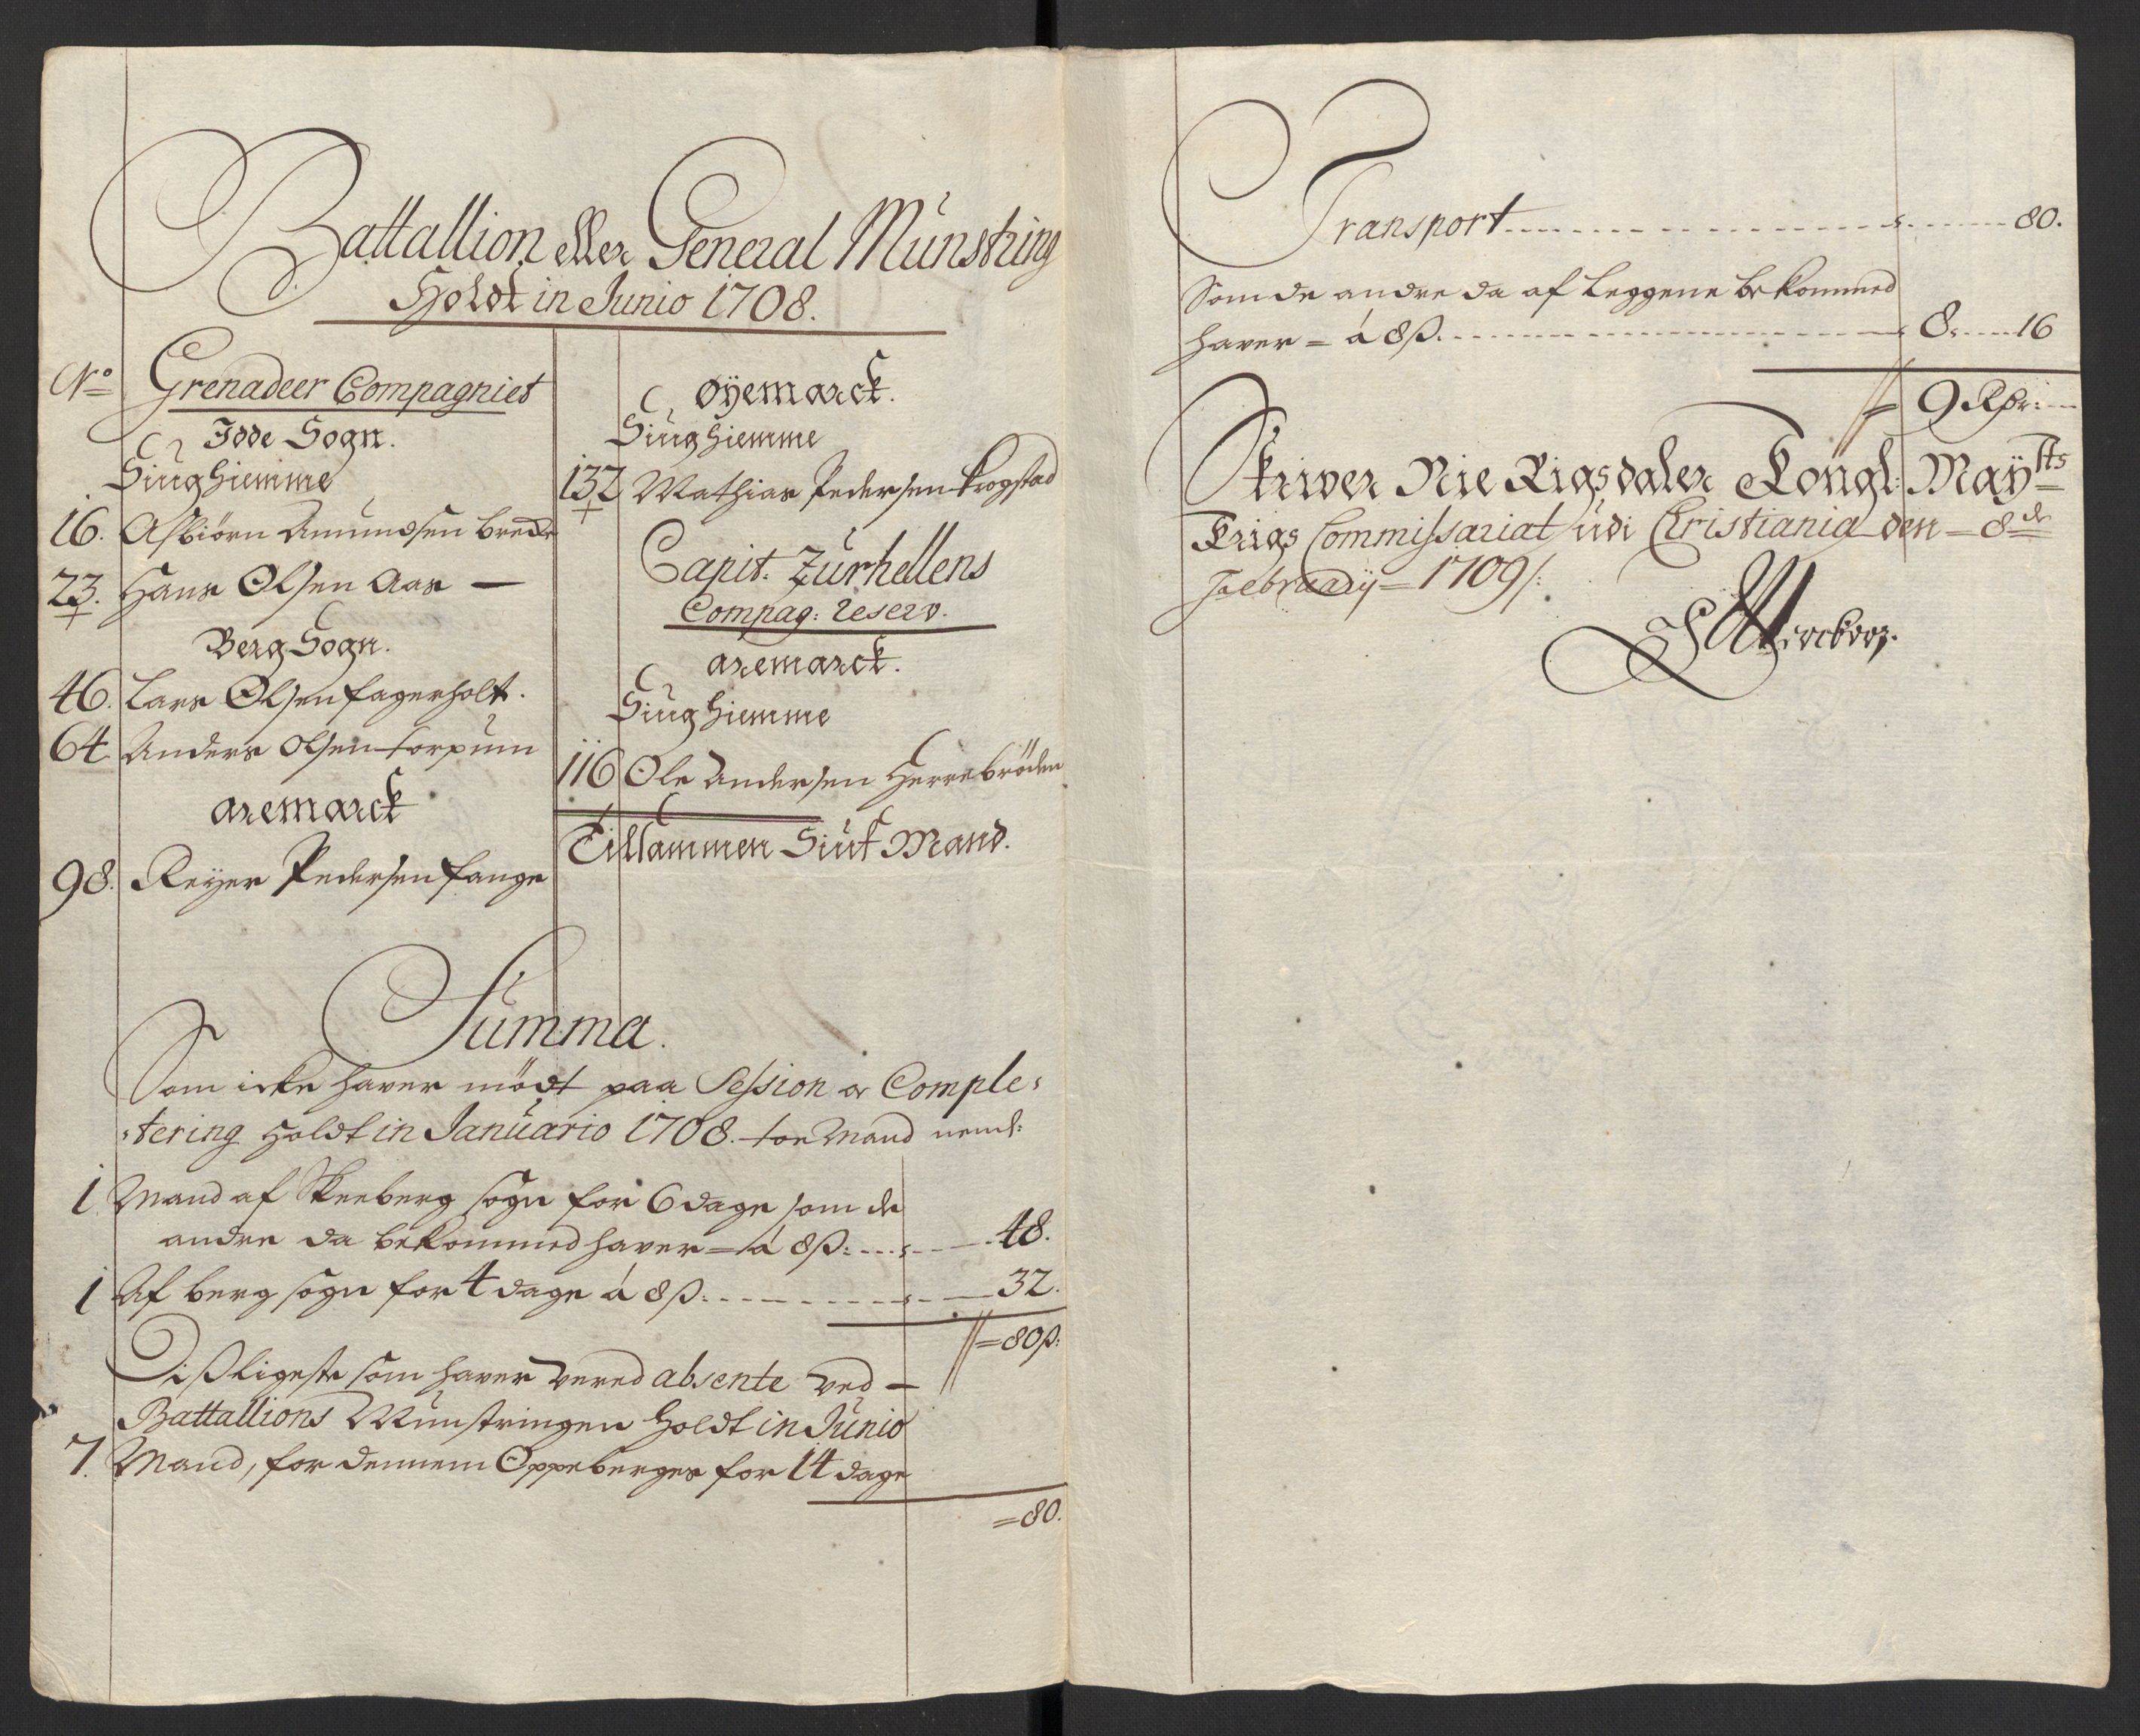 Battallion eller General Münstring
Holdt in Junio 1708.
No
Grenadeer Compagniet
Idde Sogn.
Siüg hiemme
16. Asbiörn Amundsen brede
23. Hans Olsen Aas —
Berg Sogn.
46. Lars Olsen fagerholt.
64 Anders Olsen torpum
aremarck
98. Reyer Pedersen fange
Øÿemarck.
Siüg hiemme
132 Mathias Pedersen krogstad
Capit: Zürhellens
Compag: reserv.
aremarck.
Siüg hiemme
116 Ole Andersen Herrebröden
Tillsammen Siüf Mand.
Summa.
Som icke haver mödt paa Session or Comple-
-tering holdt in Janüario 1708. toe Mand neml:
1 Mand af Skeeberg sogn for 6 dage som de
andre da bekommed haver = á 8 β: 48.
1 Af berg sogn for 4 dage á 8 β: 32.
= 80 β:
Dißligeste som haver vered absente ved —
Battallions Münstringen holdt in Jünio
7. Mand, for dennem Oppeberges for 14 dage
= 80.
Transport 80.
Som de andre da af Leggene bekommed
haver = á 8 β. 8. 16
= 9 Rdr:
Skriver Nie Rigsdaler Kongl: Maÿts
Krigs Commissariat üdi Christiania den = 8de
Februarÿ = 1709 /: